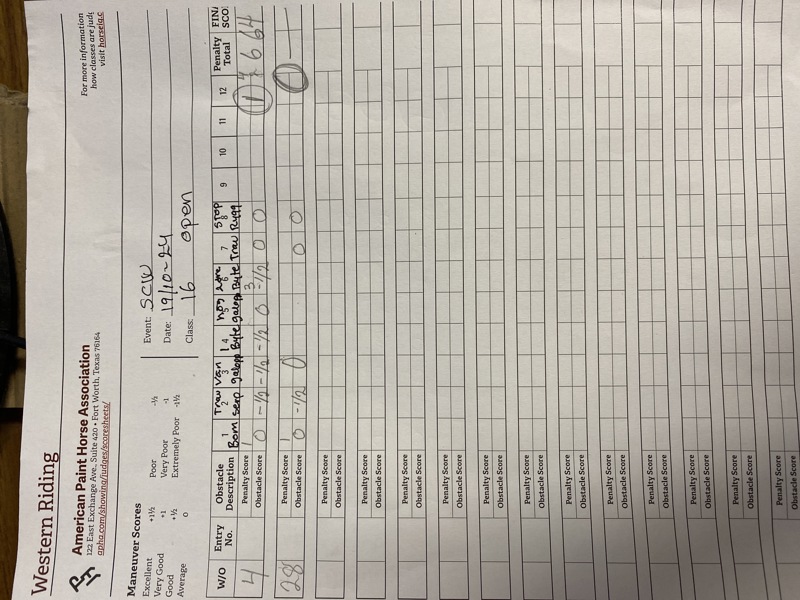 Western Riding
American Paint Horse Association
122 East Exchange Ave., Suite 420 • Fort Worth, Texas 76164
apha.com/showing/judges/scoresheets/
For more information
how classes are jud
visit horseiq.c
Maneuver Scores
Excellent +1½ Poor -½
Very Good +1 Very Poor -1
Good +½ Extremely Poor -1½
Average 0
Event: SCW
Date: 19/10-24
Class: 16 open
W/O Entry No. Obstacle Description 1 2 3 4 5 6 7 8 9 10 11 12 Penalty Total FINA SCO
Bom Trav serp Van galopp 1 Byte hög galopp 2 Byte Trav Stop Rygg
4 Penalty Score 1 3 1 4 6 64
Obstacle Score 0 -1/2 -1/2 -1/2 0 -1/2 0 0
28 Penalty Score 1 0 —
Obstacle Score 0 -1/2 0 0 0
Penalty Score
Obstacle Score
Penalty Score
Obstacle Score
Penalty Score
Obstacle Score
Penalty Score
Obstacle Score
Penalty Score
Obstacle Score
Penalty Score
Obstacle Score
Penalty Score
Obstacle Score
Penalty Score
Obstacle Score
Penalty Score
Obstacle Score
Penalty Score
Obstacle Score
Penalty Score
Obstacle Score
Penalty Score
Obstacle Score